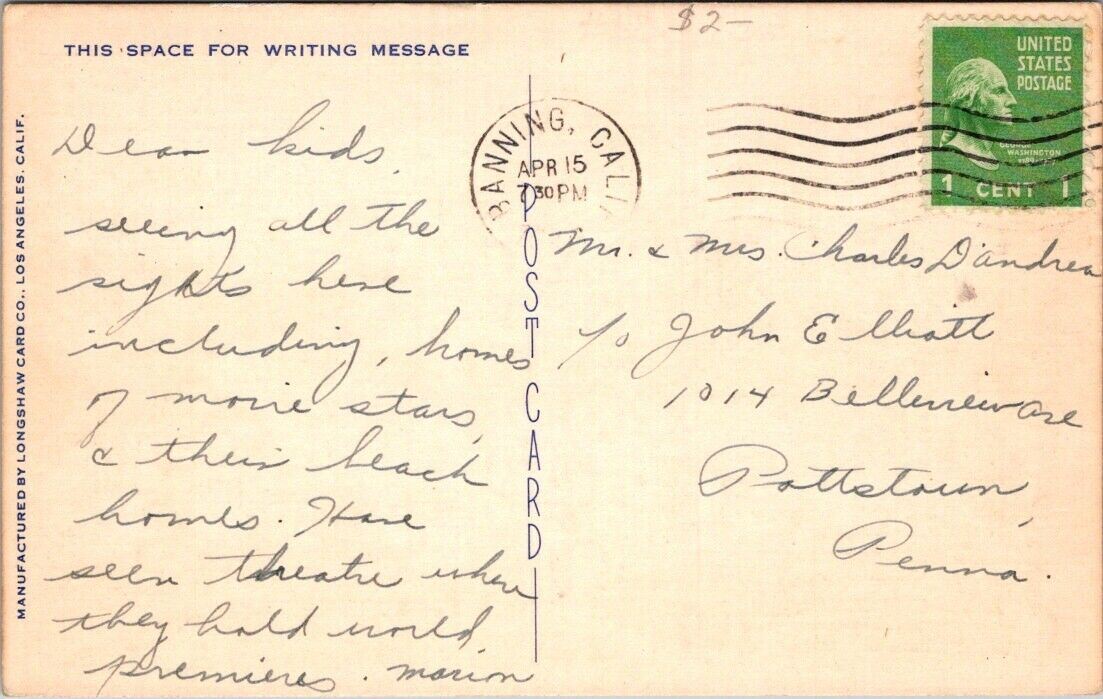 $2-
THIS SPACE FOR WRITING MESSAGE
UNITED
STATES
POSTAGE
GEORGE
WASHINGTON
1 CENT 1
BANNING, CALIF
APR 15
7 30 PM
Dear kids
seeing all the
sights here
including, homes
of movie stars,
& their beach
homes. Have
seen theatre where
they hold world
premieres. Marion
POST CARD
Mr. & Mrs. Charles D'andrea
c/o John Elliott
1014 Bellevieware
Pottstown,
Penna.
MANUFACTURED BY LONGSHAW CARD CO., LOS ANGELES, CALIF.